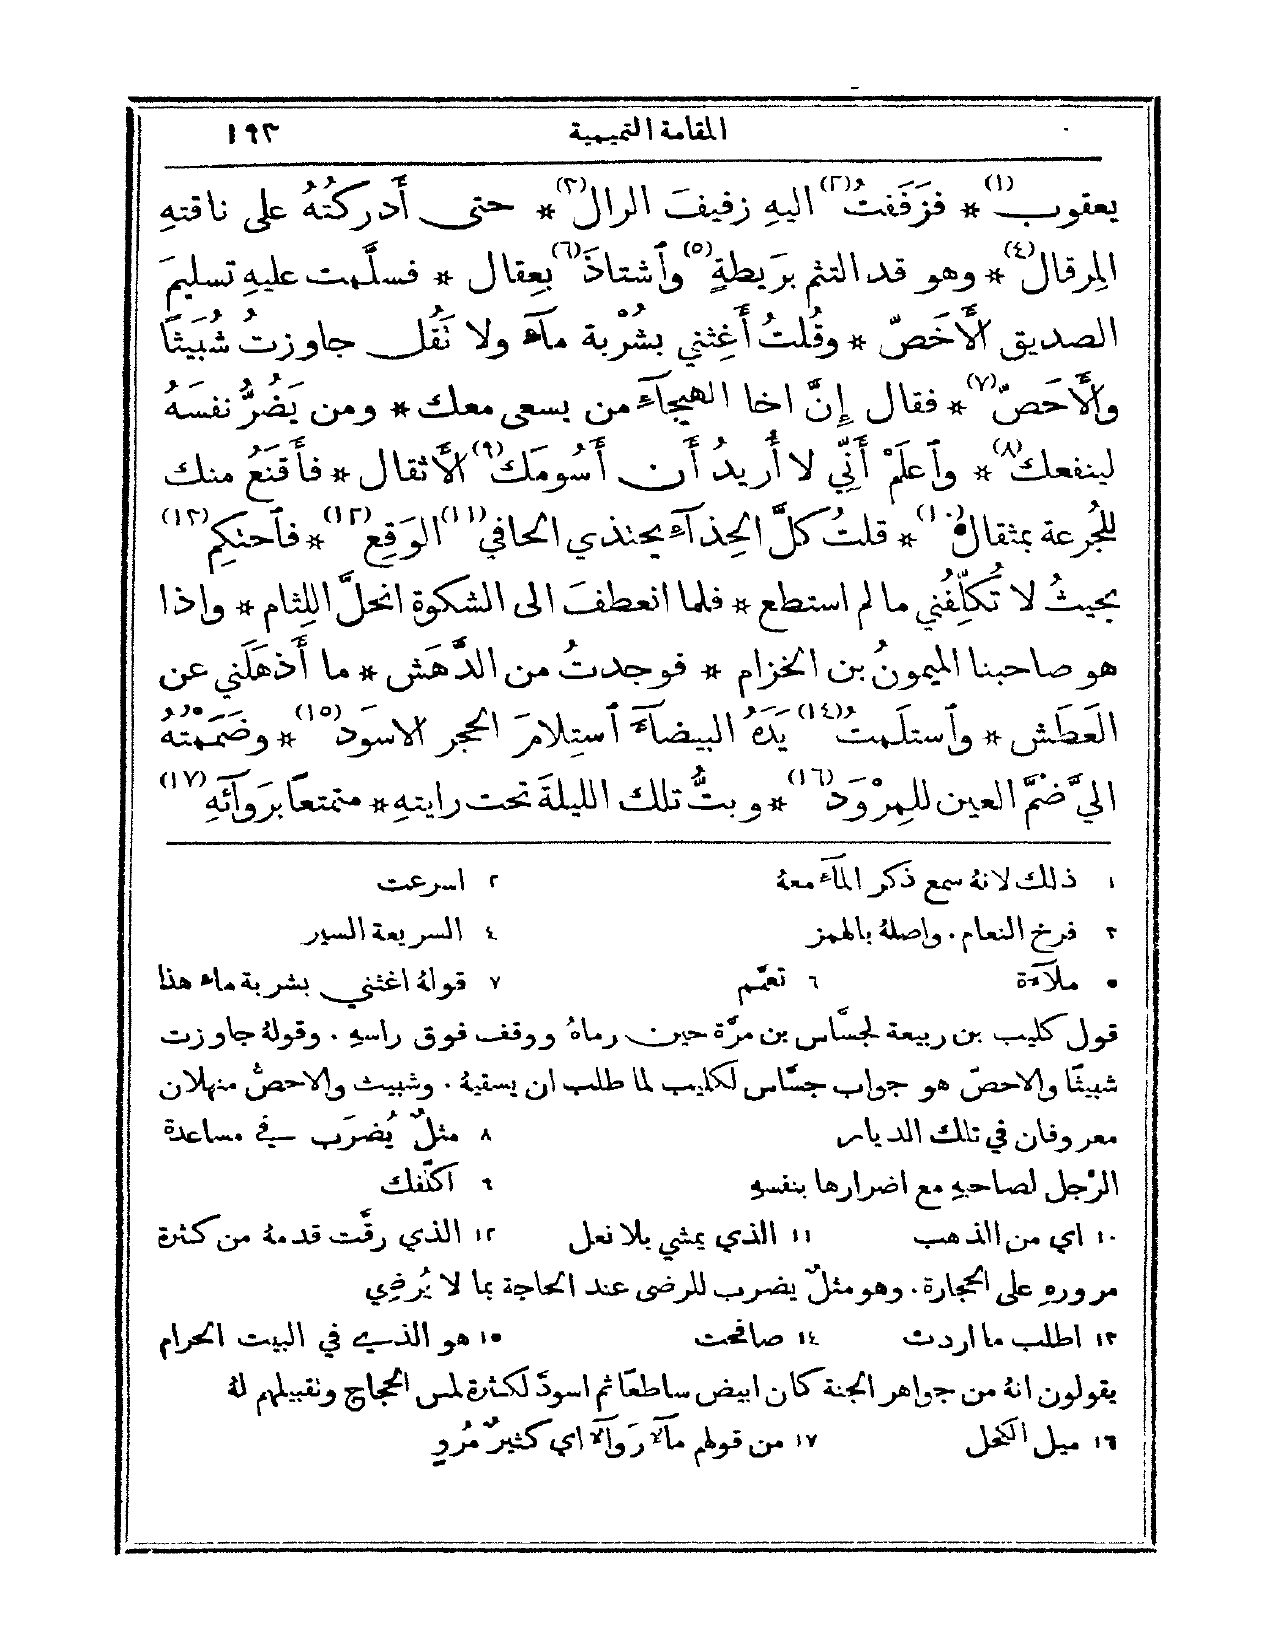 المقامة التميمية ١٩٣
يعقوب(١) * فزَفَفتُ(٢) اليهِ زفيفَ الرال(٣) * حتى أَدركتُهُ على ناقتهِ
المِرقال(٤) * وهو قد التثم بِرَيطةٍ(٥) وٱشتاذَ(٦) بعِقال * فسلَّمت عليهِ تسليمَ
الصديق الأَخَصّ * وقُلتُ أَغِثني بشُرْبة مآءٍ ولا نَقُل جاوزتُ شُبَيثًا
والأَحَصّ(٧) * فقال إِنَّ اخا الهيجآءِ من يسعى معك * ومن يَضُرُّ نفسَهُ
لينفعك(٨) * وٱعلَمْ أَنّي لا أُريدُ أَن أَسُومَك(٩) الأَثقال * فأَقنَعُ منك
للجُرعة بمثقال(١٠) * قلتُ كلَّ الحِذآءِ يحتذي الحافي(١١) الوَقِع(١٢) * فٱحتكِم(١٣)
بحيثُ لا تكلِّفُني ما لم استطع * فلما انعطفَ الى الشكوة انحلَّ اللِثام * واذا
هو صاحبنا الميمونُ بن الخزام * فوجدتُ من الدَّهَش * ما أَذهَلَني عن
العَطَش * وٱستلَمتُ(١٤) يَدَهُ البيضآءَ ٱستِلامَ الحجر الاسوَد(١٥) * وضَمَمتهُ
اليَّ ضمَّ العين للمِرْوَد(١٦) * وبتُّ تلك الليلةَ تحت رايتهِ * متمتعًا بِرَوآئهِ(١٧)
١ ذلك لانهُ سمع ذكر المآء معهُ ٢ اسرعت
٣ فرخ النعام. واصلهُ بالهمز ٤ السريعة السير
٥ ملآءة ٦ تعمَّم ٧ قولهُ اغثني بشربة ماء هذا
قول كليب بن ربيعة لجسَّاس بن مرَّة حين رماهُ ووقف فوق راسهِ. وقولهُ جاوزت
شبيثًا والاحصّ هو جواب جسَّاس لكليب لما طلب ان يسقيهُ. وشبيث والاحصُّ منهلان
معروفان في تلك الديار ٨ مثلٌ يُضرَب في مساعدة
الرَّجل لصاحبهِ مع اضرارها بنفسهِ ٩ اكلّفك
١٠ اي من الذهب ١١ الذي يمشي بلا نعل ١٢ الذي رقَّت قدمهُ من كثرة
مرورهِ على الحجارة. وهو مثلٌ يضرب للرضى عند الحاجة بما لا يُرضِي
١٣ اطلب ما اردت ١٤ صافحت ١٥ هو الذي في البيت الحرام
يقولون انهُ من جواهر الجنة كان ابيض ساطعًا ثم اسودَّ لكثرة لمس الحجاج ونقبيلهم لهُ
١٦ ميل الكحل ١٧ من قولهم مآءٌ رَوآءٌ اي كثيرٌ مُروٍ